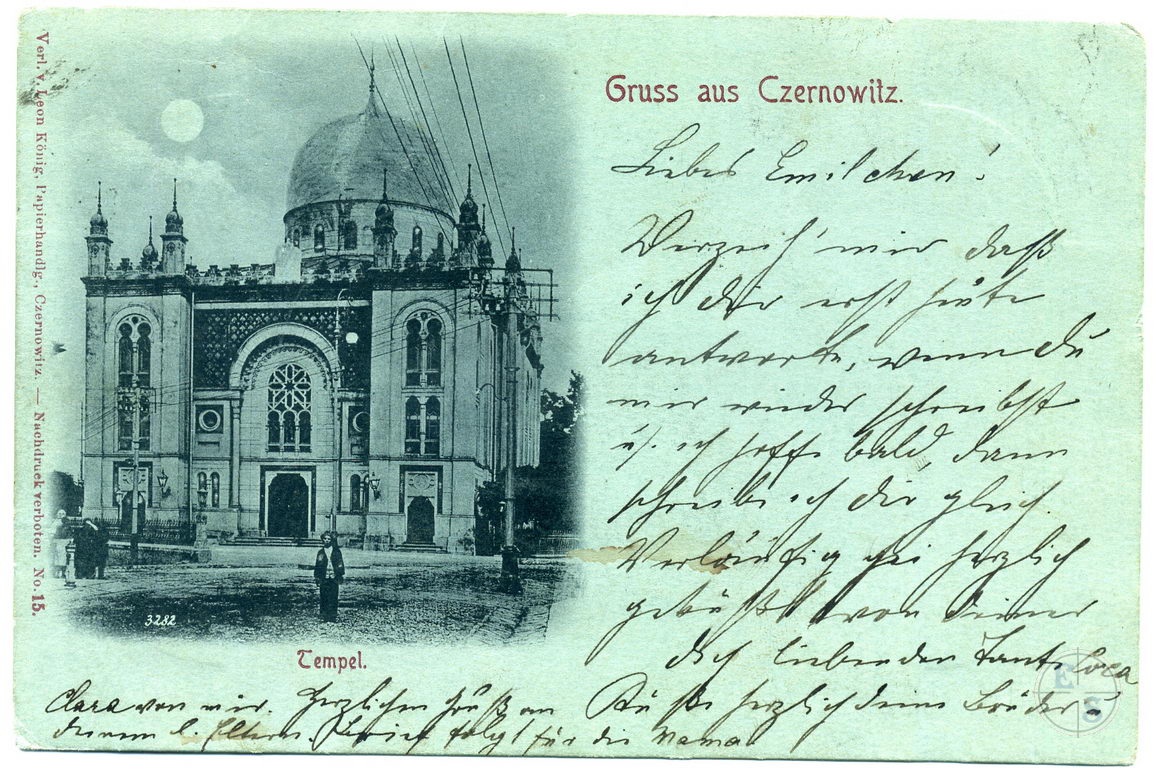 Verl. v. Leon König, Papierhandlg., Czernowitz. — Nachdruck verboten. No. 15.
Gruss aus Czernowitz.
Liebes Emilchen!
Verzeih' mir daß
ich dir erst heute
antworte, wenn du
mir wieder schreibst
u. ich hoffe bald, dann
schreibe ich dir gleich.
Vorläufig sei herzlich
geküßt von deiner
dich liebenden Tante Cora
Küsse herzlich deine Brüder u
Clara von mir. Herzlichen Gruß an
deinen l. Eltern. Brief folgt für die Mama
3282
Tempel.
E S